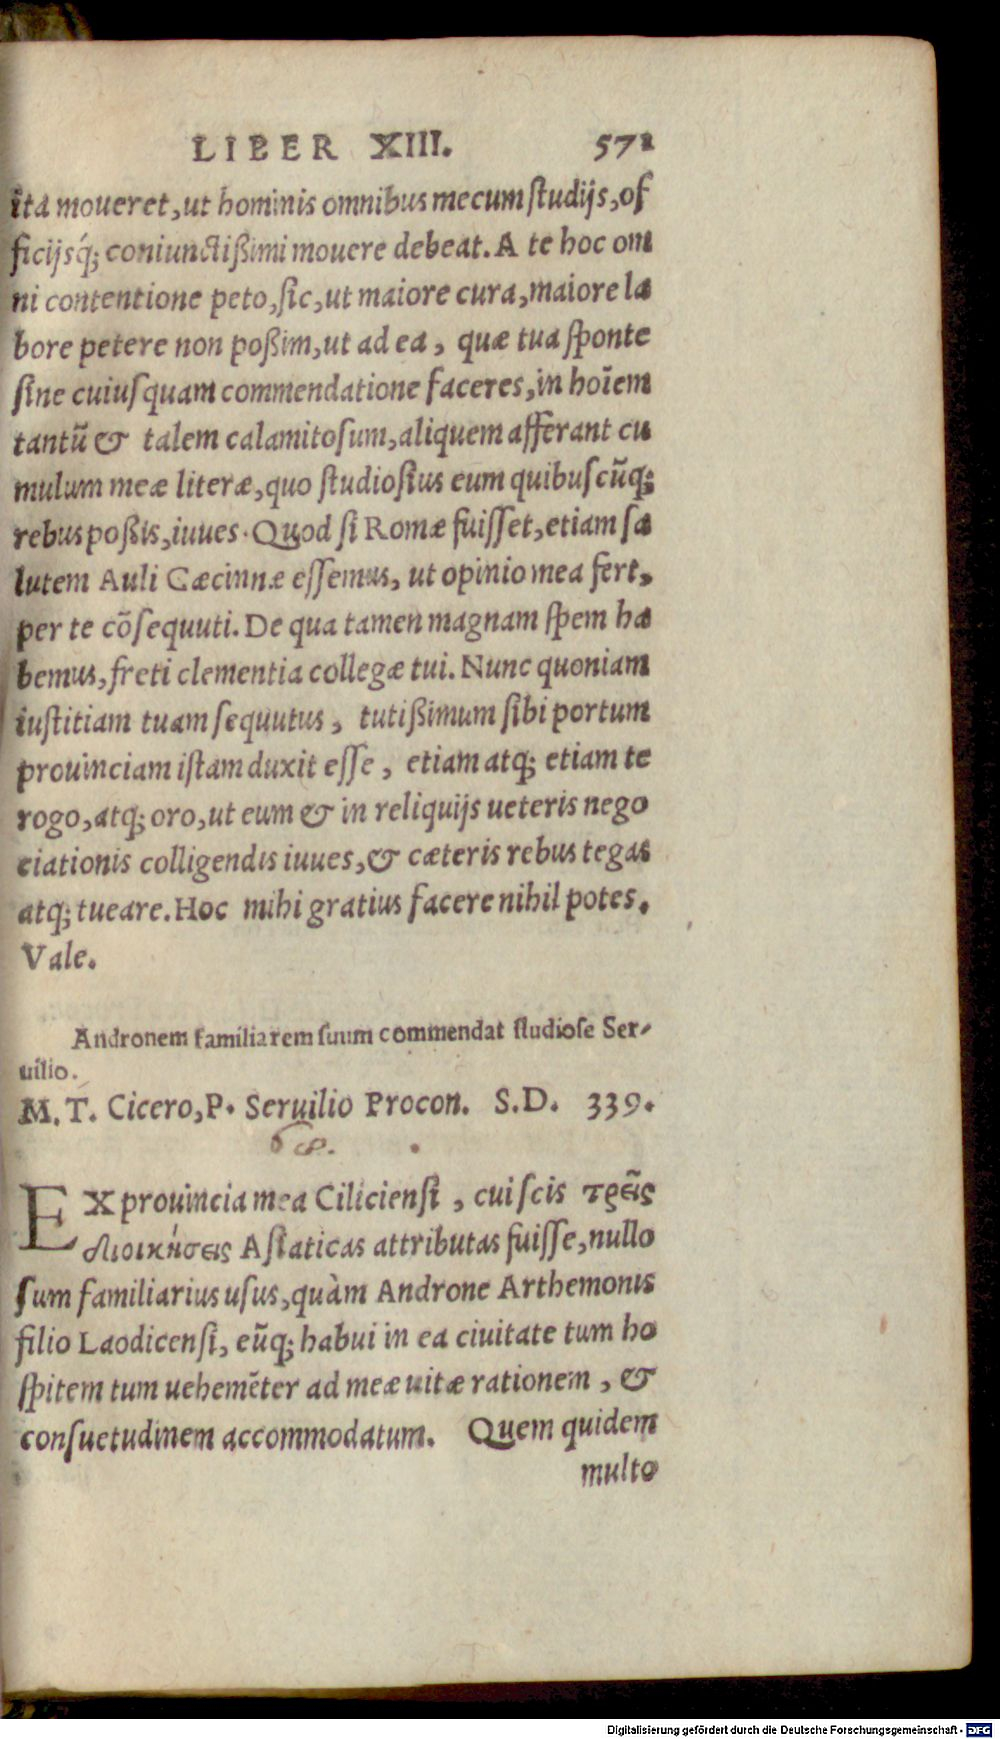 LIBER XIII. 571
ita moueret, ut hominis omnibus mecum studijs, of
ficijsq́; coniunctißimi mouere debeat. A te hoc om
ni contentione peto, sic, ut maiore cura, maiore la
bore petere non poßim, ut ad ea, quæ tua sponte
sine cuiusquam commendatione faceres, in hoĩem
tantũ & talem calamitosum, aliquem afferant cu
mulum meæ literæ, quo studiosius eum quibuscũq;
rebus poßis, iuues. Quod si Romæ fuisset, etiam sa
lutem Auli Cæcinnæ essemus, ut opinio mea fert,
per te cõsequuti. De qua tamen magnam spem ha
bemus, freti clementia collegæ tui. Nunc quoniam
iustitiam tuam sequutus, tutißimum sibi portum
prouinciam istam duxit esse, etiam atq; etiam te
rogo, atq; oro, ut eum & in reliquijs ueteris nego
ciationis colligendis iuues, & cæteris rebus tegas
atq; tueare. Hoc mihi gratius facere nihil potes.
Vale.
Andronem familiarem suum commendat studiose Ser-
uilio.
M. T. Cicero, P. Seruilio Procon. S.D. 339.
EX prouincia mea Ciliciensi, cui scis τρεῖς
διοικήσεις Asiaticas attributas fuisse, nullo
sum familiarius usus, quàm Androne Arthemonis
filio Laodicensi, eũq; habui in ea ciuitate tum ho
spitem tum uehemẽter ad meæ uitæ rationem, &
consuetudinem accommodatum. Quem quidem
multo
Digitalisierung gefördert durch die Deutsche Forschungsgemeinschaft - DFG